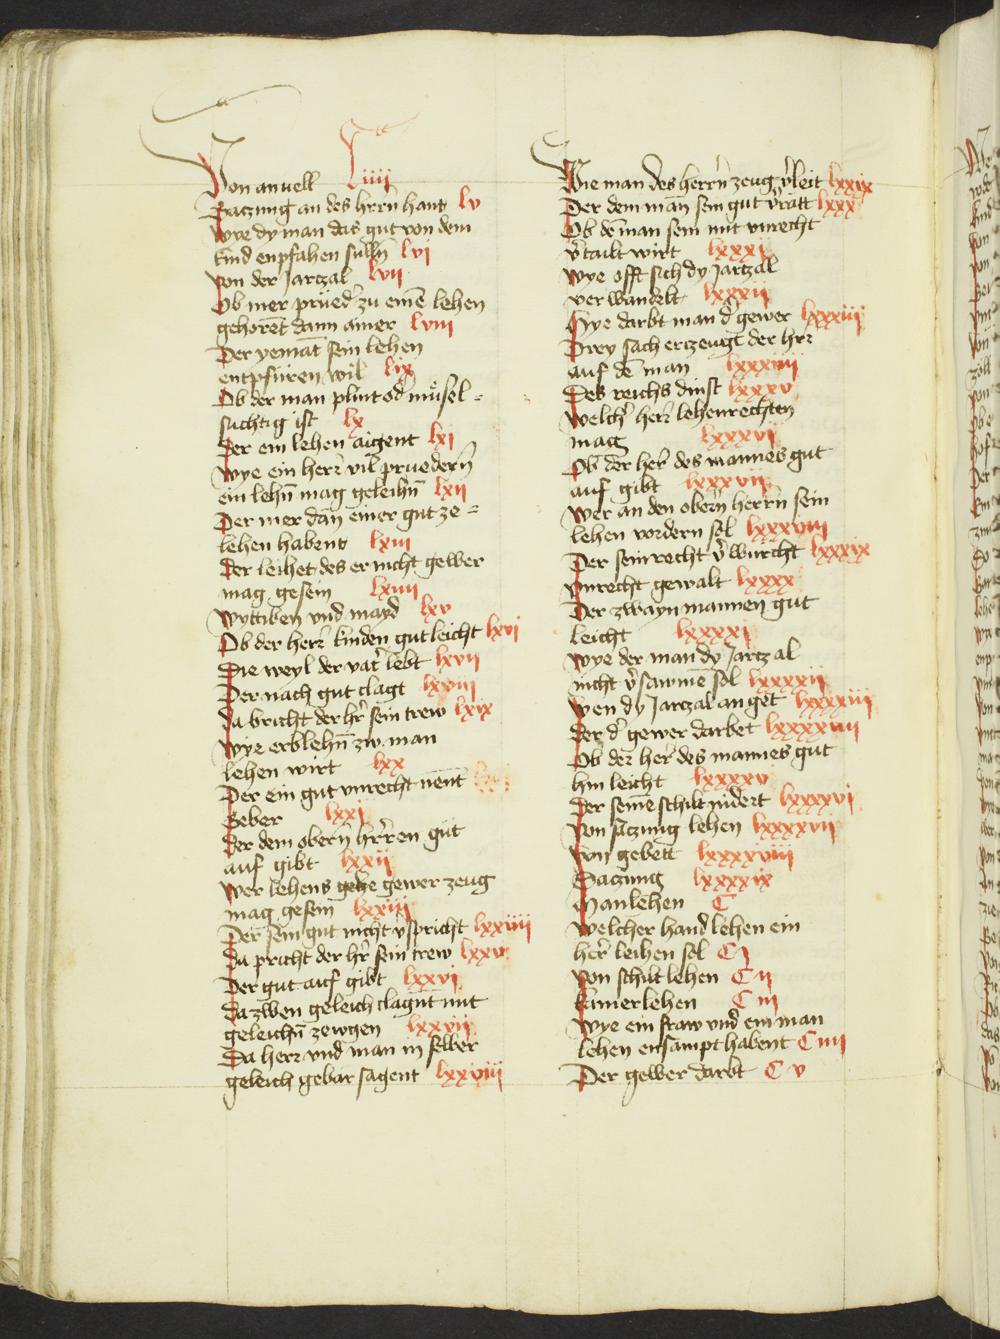 Von anuell Liiii
Saczung an des hrrn hant lv
Wye dy man das gut von dem
kind enpfahen sulln̄ lvi
von der Jarczal lvii
Ob mer prüed' zu einē lehen
gehorēt dann ainer lviii
Der yemāt sein lehen
entpfüren wil lix
Ob der man plint od' müsel=
suchtig ist lx
Der ein lehen aigent lxi
wye ein herr vil pruedern̄
ein lehn̄ mag geleihn̄ lxii
Der mer dan einer gut ze=
lehen habent lxiii
Der leihet des er nicht gewer
mag gesein lxiiii
wyttiben vnd mayd lxv
Ob der herr kinden gut leicht lxvi
Die weyl der vat' lebt lxvii
Der nach gut clagt lxviii
da bricht der hr̄ sein trew lxix
wye erblehn̄ zw man
lehen wirt lxx
Der ein gut vnrecht nent
Geber lxxi
Der dem obern̄ hr̄ren gut
auf gibt lxxii
wer lehens gehe gewer zeug
mag gesein lxxiii
Der sein gut nicht v'spricht lxxiiii
Da pricht der hr̄ sein trew lxxv
Der gut auf gibt lxxvi
Da zwen geleich clagnt mit
geleichn̄ zewgen lxxvii
Da herr vnd man in selber
geleich gebar sagent lxxviii
Wie man des herrn̄ zeug v'leit lxxix
Der dem mān sein gut v'rätt lxxx
Ob dē man sein mit vnrecht
v'tailt wirt lxxxi
wye offt sich dy Jarczal
verwandelt lxxxii
Hye darbt man d' gewer lxxxiii
Drey sach erczeugt der hrr
auf dē man lxxxiiii
Des reichs dinst lxxxv
welch' herr lehenrechten
mag lxxxvi
Ob der her' des mannes gut
auf gibt lxxxvii
wer an den obern̄ herrn̄ sein
lehen vordern sol lxxxviii
Der sein recht v'würcht lxxxix
vnrecht gewalt lxxxx
Der zwayn mannen gut
leicht lxxxxi
wye der man dy Jarczal
nicht v'sawmē sol lxxxxii
wen dy Jarczal an get lxxxxiii
der d' gewer darbet lxxxxiiii
Ob der her' des mannes gut
hin leicht lxxxxv
der seinē schilt nidert lxxxxvi
von saczung lehen lxxxxvii
von gebett lxxxxviii
Saczung lxxxxix
Manlehen C
welcher hand lehen ein
her' leihen sol C j
von schilt lehen C ij
kamerlehen C iij
wye ein fraw vnd ein man
lehen ensampt habent C iiij
Der gewer darbt C v